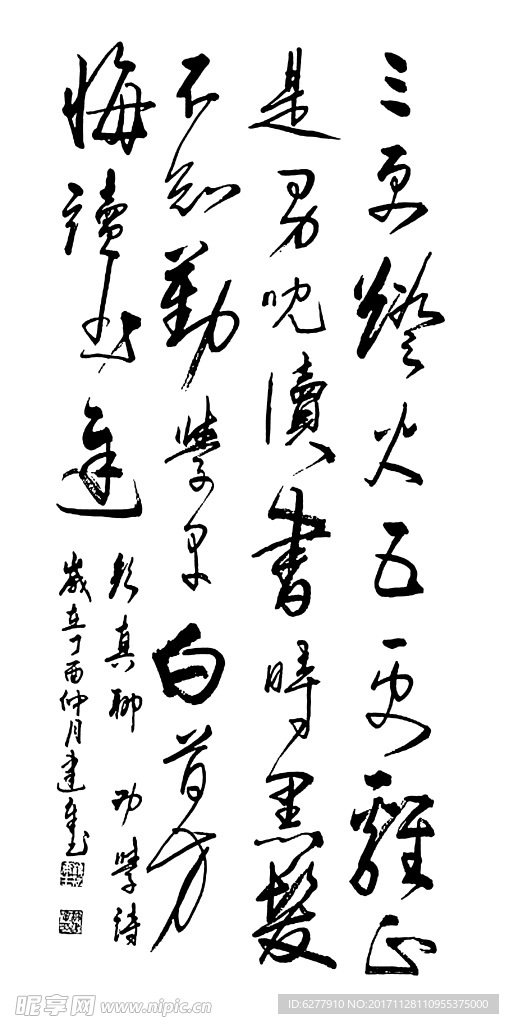 三更燈火五更雞正
是男兒讀書時黑髮
不知勤學早白首方
悔讀書遲
顏真卿 劝學詩
歲在丁酉仲月建
昵享网 www.nipic.cn
ID:6277910 NO:20171128110955375000